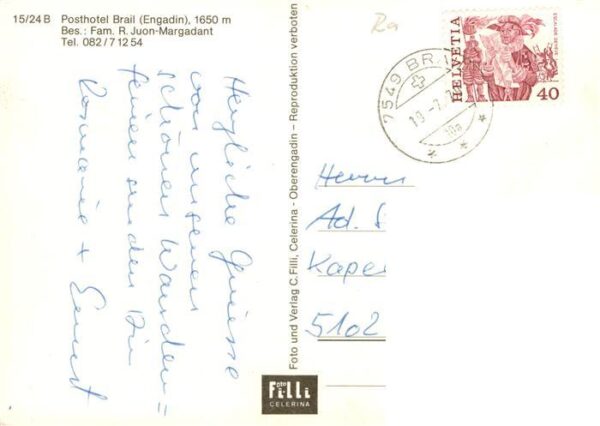 15/24 B Posthotel Brail (Engadin), 1650 m
Bes.: Fam. R. Juon-Margadant
Tel. 082/7 12 54
Herzliche Grüsse
von unseren
schönen Wander=
ferien senden Dir
Rosmarie + Ernst
Foto und Verlag C. Filli, Celerina - Oberengadin – Reproduktion verboten
Foto
Filli
CELERINA
7549 BR
10a
HELVETIA
40
Herrn
Ad.
Kape
5102